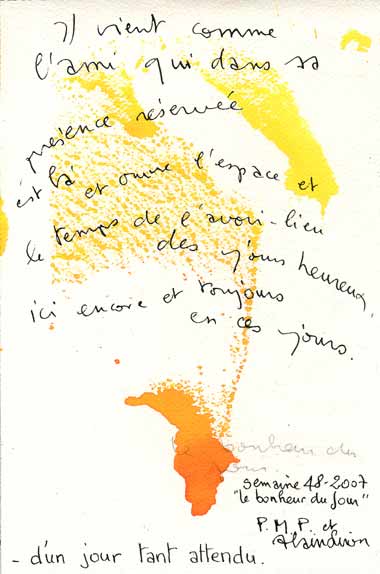 Il vient comme
l'ami qui dans sa
présence réservée
est là et ouvre l'espace et
le temps de l'avoir-lieu
des jours heureux,
ici encore et toujours
en ces jours.
le bonheur du
jour.
semaine 48-2007
"le bonheur du jour"
P.M.P. et
- d'un jour tant attendu.